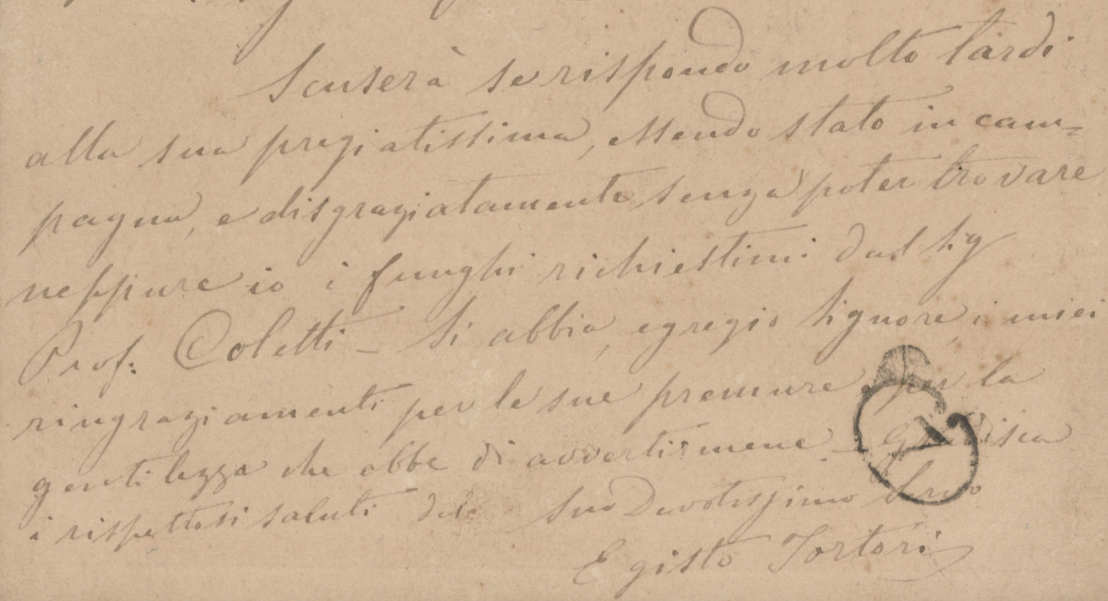 Scuserà se rispondo molto tardi
alla sua pregiatissima, essendo stato in cam=
pagna, e disgraziatamente senza poter trovare
neppure io i funghi richiestimi dal Sig
Prof. Coletti – Si abbia, egregio Signore, i miei
ringraziamenti per le sue premure per la
gentilezza che ebbe di avvertirmene – Gradisca
i rispettosi saluti del Suo Devotissimo Servo
Egisto Tortori